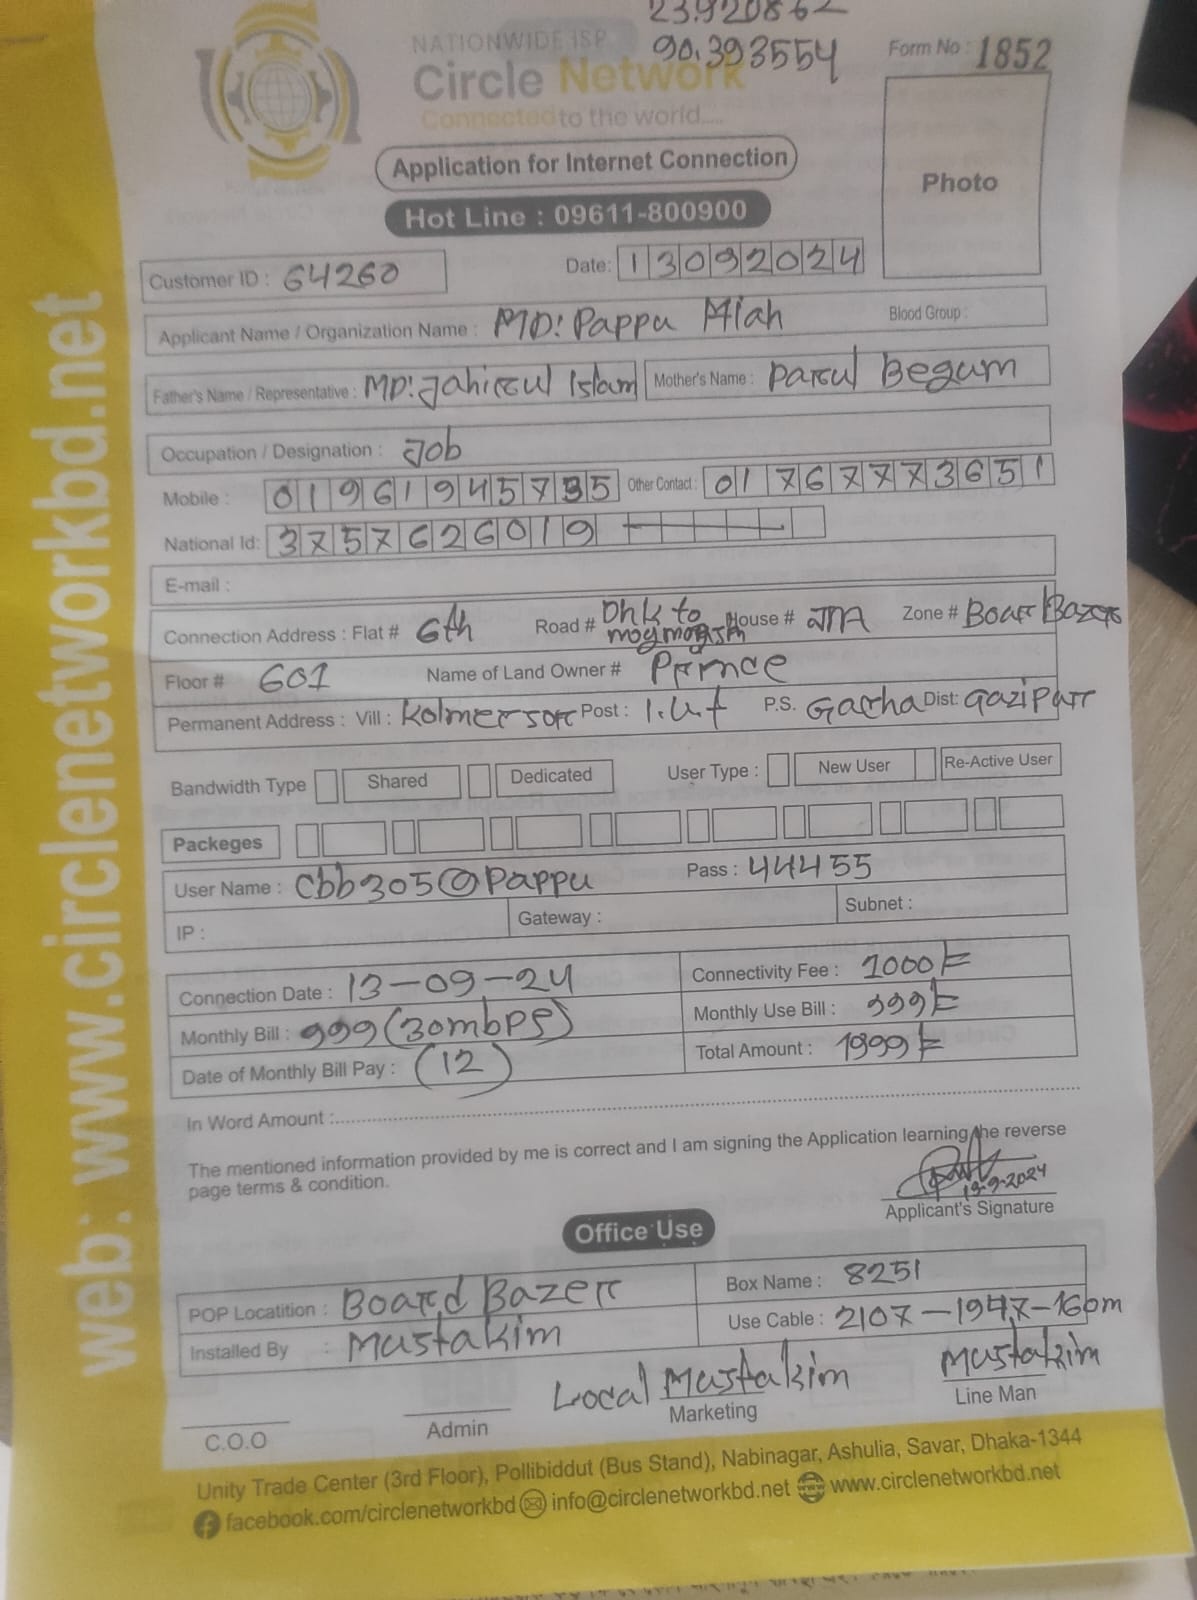 23.920862
90.393554
NATIONWIDE ISP
Circle Network
Connected to the world.....
Form No : 1852
Application for Internet Connection
Photo
Hot Line : 09611-800900
Customer ID : 64260 Date: 13092024
Applicant Name / Organization Name : MD: Pappu Miah Blood Group :
Father's Name / Representative : MD: Jahirul Islam Mother's Name : Parul Begum
Occupation / Designation : Job
Mobile : 01961945735 Other Contact : 01767773651
National Id: 3757626019
E-mail :
Connection Address : Flat # 6th Road # Dhk to House # Zone # Board Bazar
Floor # 601 Name of Land Owner # Prince
Permanent Address : Vill : Post : I.U.t P.S. Gacha Dist: Gazipur
Bandwidth Type Shared Dedicated User Type : New User Re-Active User
Packeges
User Name : cbb305@pappu Pass : 44455
IP : Gateway : Subnet :
Connection Date : 13-09-24 Connectivity Fee : 1000/=
Monthly Bill : 999 (30mbps) Monthly Use Bill : 999/=
Date of Monthly Bill Pay : (12) Total Amount : 1999/=
In Word Amount :
The mentioned information provided by me is correct and I am signing the Application learning the reverse
page terms & condition.
13-9-2024
Applicant's Signature
Office Use
POP Locatition : Board Bazer Box Name : 8251
Installed By : Mustakim Use Cable : 2107-1947-160m
Local Mustakim Mustakim
C.O.O Admin Marketing Line Man
Unity Trade Center (3rd Floor), Pollibiddut (Bus Stand), Nabinagar, Ashulia, Savar, Dhaka-1344
facebook.com/circlenetworkbd info@circlenetworkbd.net www.circlenetworkbd.net
web: www.circlenetworkbd.net